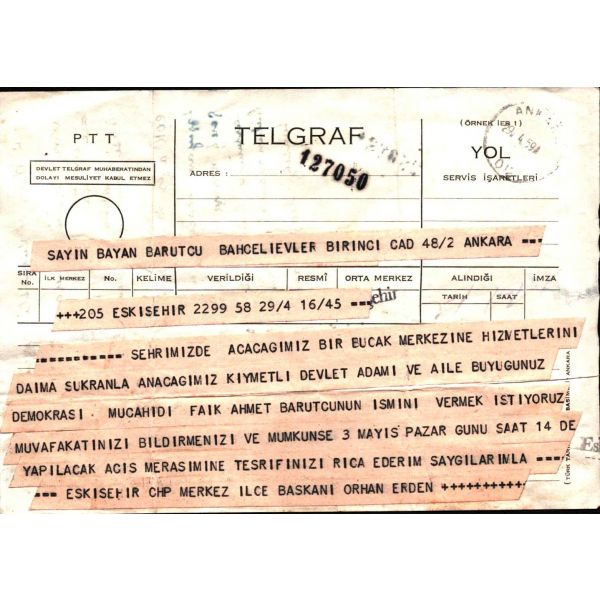 PTT
DEVLET TELGRAF MUHABERATINDAN
DOLAYI MESULİYET KABUL ETMEZ
TELGRAF
ADRES :
127050
(ÖRNEK İEB 1)
YOL
SERVİS İŞARETLERİ
29.4.59
SAYIN BAYAN BARUTCU BAHCELIEVLER BIRINCI CAD 48/2 ANKARA ---
SIRA No. İLK MERKEZ No. KELİME VERİLDİĞİ RESMÎ ORTA MERKEZ ALINDIĞI İMZA
TARİH SAAT
+++205 ESKISEHIR 2299 58 29/4 16/45 ---
SEHRIMIZDE ACACAGIMIZ BIR BUCAK MERKEZINE HIZMETLERINI
DAIMA SUKRANLA ANACAGIMIZ KIYMETLI DEVLET ADAMI VE AILE BUYUGUNUZ
DEMOKRASI MUCAHIDI FAIK AHMET BARUTCUNUN ISMINI VERMEK ISTIYORUZ
MUVAFAKATINIZI BILDIRMENIZI VE MUMKUNSE 3 MAYIS PAZAR GUNU SAAT 14 DE
YAPILACAK ACIS MERASIMINE TESRIFINIZI RICA EDERIM SAYGILARIMLA ----
--- ESKISEHIR CHP MERKEZ ILCE BASKANI ORHAN ERDEN ++++++++++